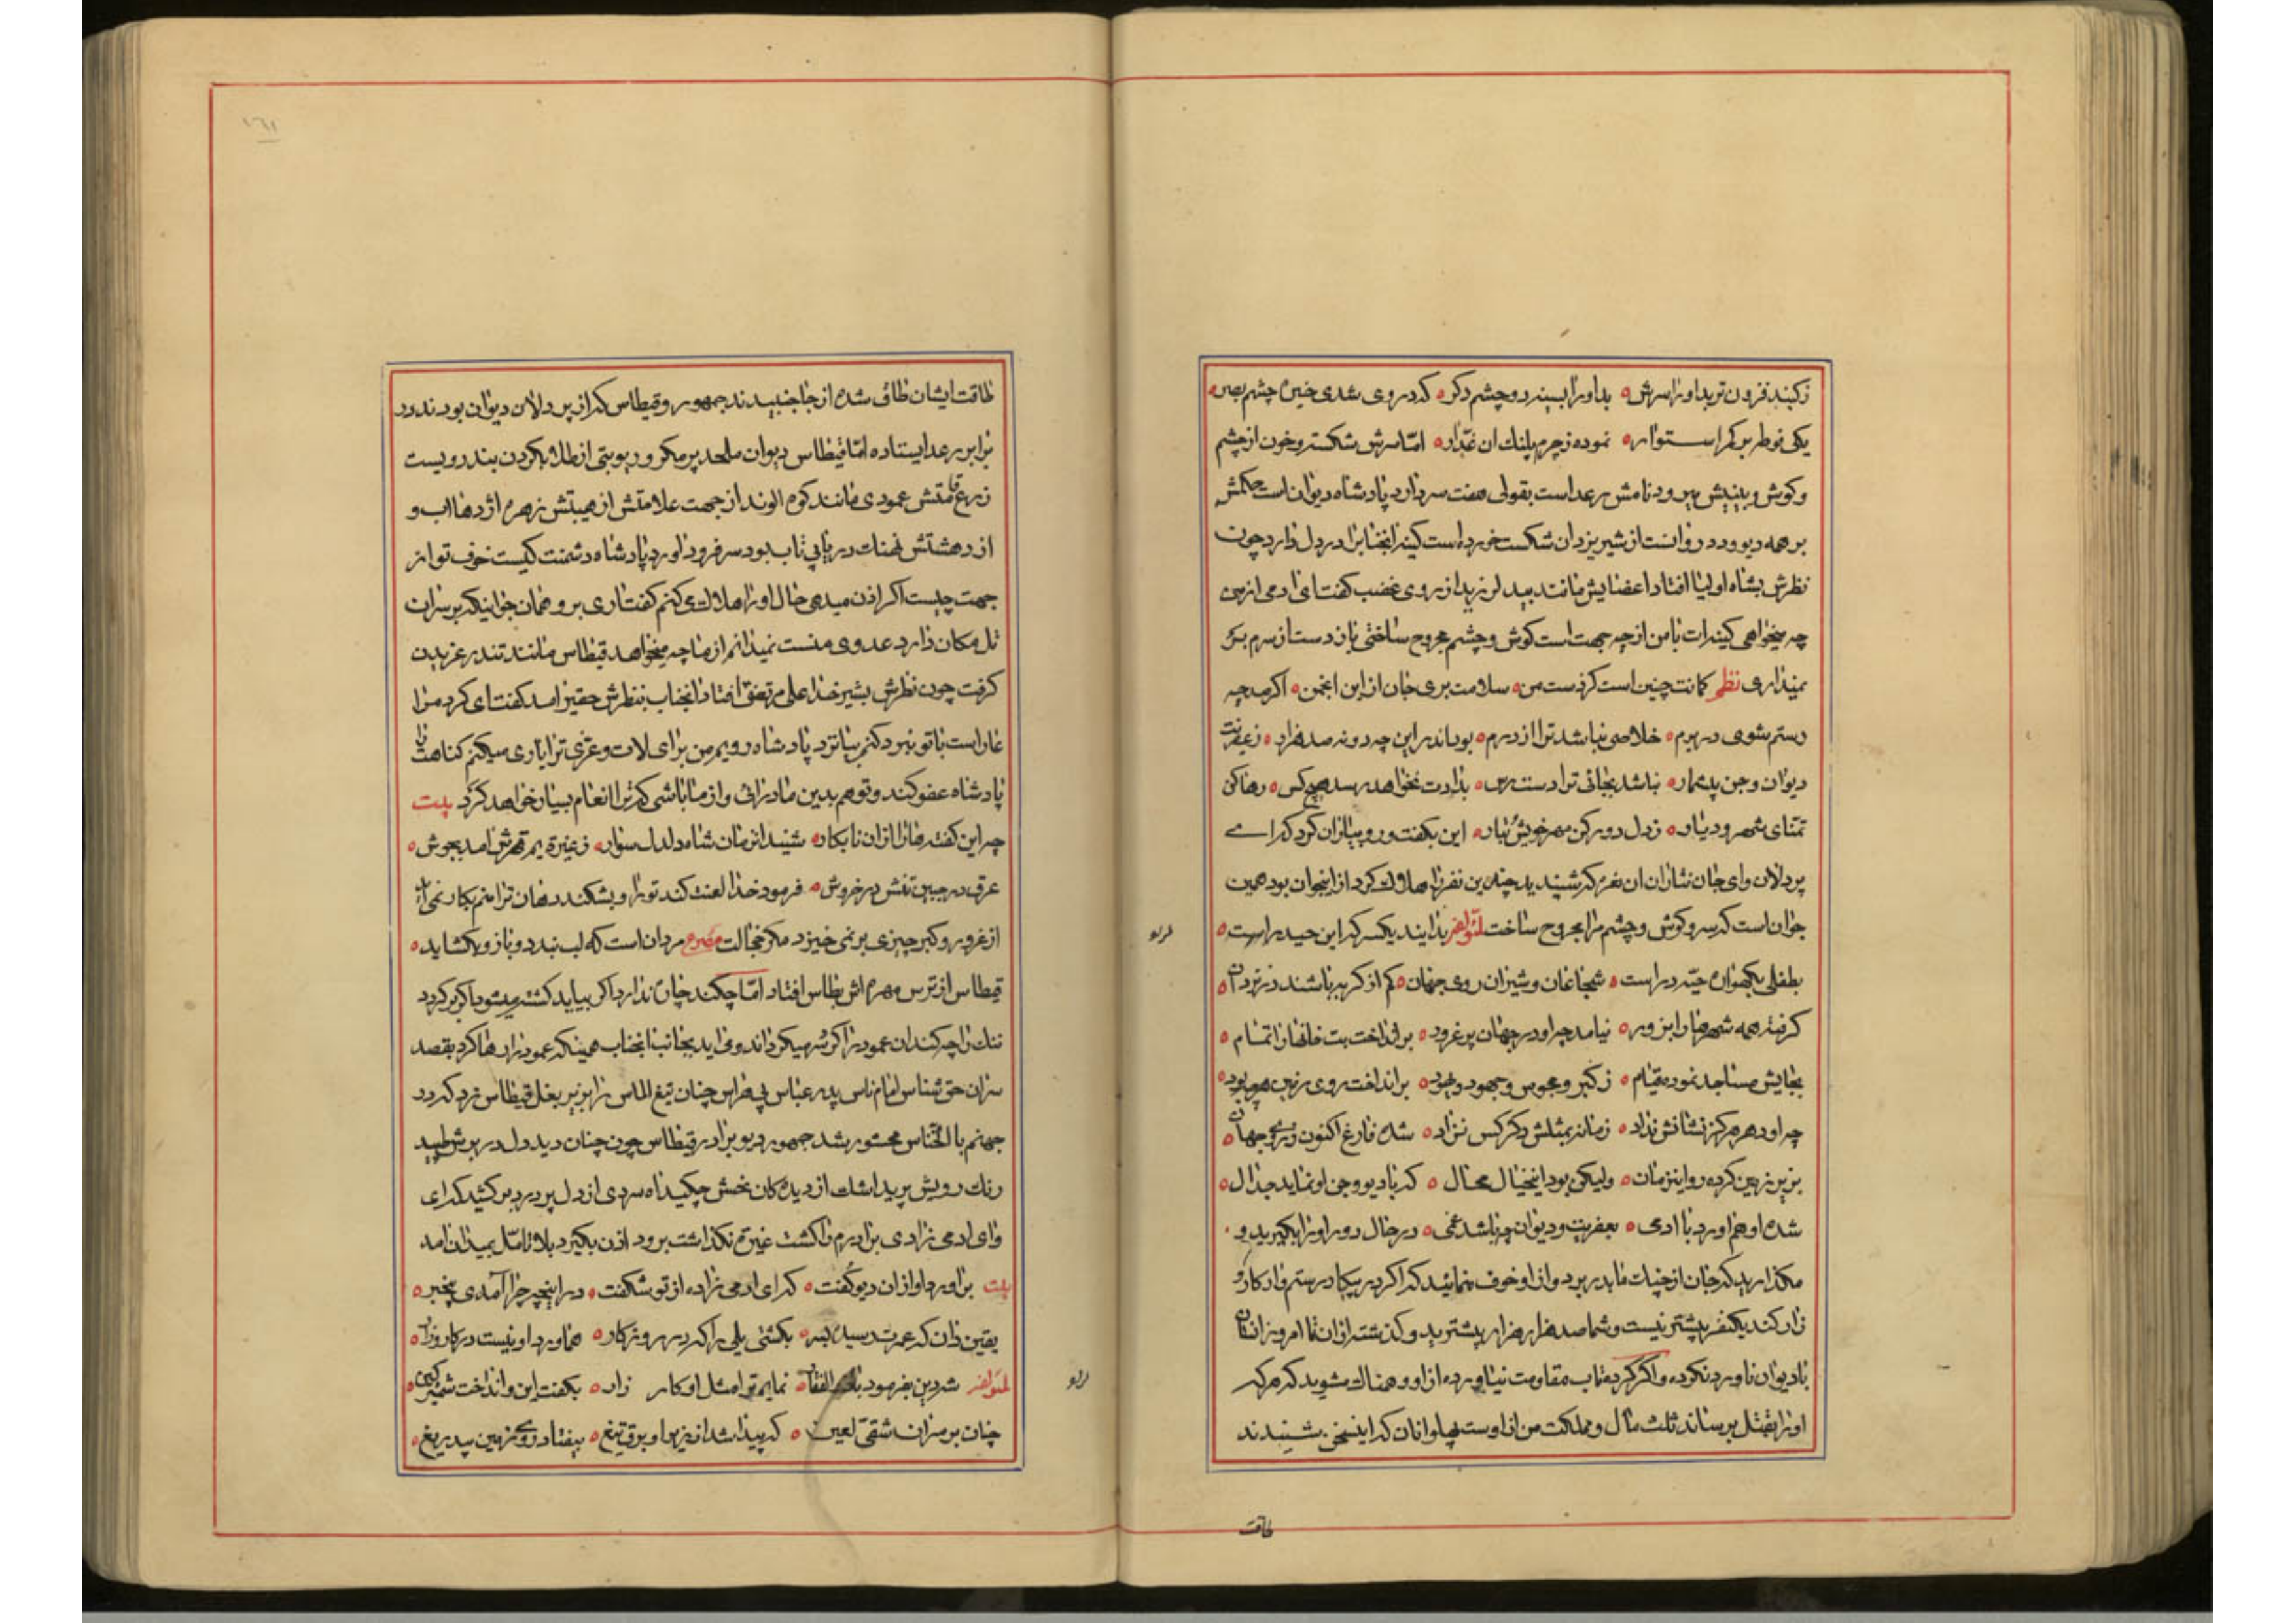 ز کبند فزون تر بد او را سرش ه بد او را بسینه دو چشم دکر ه که در وی شدی خیره چشم بصر ه
یکی نوطه بر کمر استوار ه نموده ز چرم پلنك ان غدار ه اما سرش شکسته و خون از چشم
و کوش و بینیش میرود نامش رعد است بقولی هفت سر دارد پادشاه دیوان است حکمش
بر همه دیو و دد روانست از شیر یزدان شکست خورده است کینه انجنابرا در دل دارد چون
نظرش بشاه اولیا افتاد اعضایش مانند بید لرزید از روی غضب کفت ای ادمی از من
چه میخواهی کینه ات با من از چه جهت است کوش و چشم مجروح ساختی باز دست از سرم بر
نمیداری نظم کمانت چنین است کز دست من ه سلامت بری جان از این انجمن ه اکر چه
رستم شوی در برم ه خلاصی نباشد ترا از درم ه بود اندر این چه دو نه صد هزار ه ز عفریت
دیوان و جن بیشمار ه نباشد بجائی ترا دست رس ه بدادت نخواهد رسد هیچ کس ه رها کن
تمنای شهر و دیار ه ز دل دور کن مهر خویش و تبار ه این بکفت و رو بیاران کرد که ای
پردلان و ای جان نثاران ان نعره که شنیدید چندین نفر را هلاك کرد از اینجوان بود همین
جوان است که سر و کوش و چشم مرا مجروح ساخت لمؤلفه بدانید یکسر که این حیدر است ه
بطفلی بکهواره حیّه در است ه شجاعان و شیران روی جهان ه کم از کربه باشند در نزد ان ه
کرفته همه شهرها را بزور ه نیامد چو او در جهان پر غرور ه بر انداخت بت خانها را تمام ه
بجایش مساجد نموده قیام ه ز کبر و مجوس و جهود و یهود ه بر انداخت روی زمین هر چه بود ه
چو او دهر هرکز نشانش نداد ه زمانه بمثلش دکر کس نزاد ه شده فارغ اکنون ز روی جهان ه
بزیر زمین کرده رو اینزمان ه ولیکن بود اینخیال محال ه که با دیو و جن او نماید جدال ه
شده او هم اورد با ادمی ه بعفریت و دیوان چه باشد غمی ه در حال دور او را بکیرید و
مکذارید که جان از چنك ما بدر برد و از او خوف منمائید که اکر در پیکار رستم وار کار
زار کند یکنفر بیشتر نیست و شما صد هزار هزار بیشترید و کذشته از ان تا امروز انسان
با دیوان ناورد نکرده و اکر کرده تاب مقاومت نیاورده از او وهمناك مشوید که هر که
او را بقتل برساند ثلث مال و مملکت من از اوست پهلوانان که اینسخن شنیدند
طاقت
طاقت ایشان طاق شده از جا جنبیدند جمهور و قیطاس که از پر دلان دیوان بودند در
برابر رعد ایستاده اما قیطاس دیوان ملحد پر مکر و ریو بتی از طلا بکردن بند دویست
زرع قامتش عمودی مانند کوه الوند از جهت علامتش از هیبتش زهره اژدها اب و
از دهشتش نهنك دریا بی تاب بود سر فرود اورد پادشاه دشمنت کیست خوف تو از
جهت چیست اکر اذن میدهی حال او را هلاك می کنم کفت اری برو همان جوانیکه بر سر ان
تل مکان دارد عدوی منست نمیدانم از ما چه میخواهد قیطاس مانند تندر غریدن
کرفت چون نظرش بشیر خدا علی مرتضی افتاد انجناب بنظرش حقیر امد کفت ای کرد مرا
عار است با تو نبرد کنم بیا نزد پادشاه رویم من برای لات و عزی ترا یاری میکنم کناهت را
پادشاه عفو کند و تو هم بدین ما درائی و از ما باشی که ترا انعام بسیار خواهد کرد بیت
چو این کفته ها را از ان نابکار ه شنید انزمان شاه دلدل سوار ه ز غیرت یم قهرش امد بجوش ه
عرق در جبین تنش در خروش ه فرمود خدا لعنت کند تو را و بشکند دهان ترا صنم بکار نمی اید
از غرور و کبر چیزی بر نمی خیزد مکر خجالت مصرع مردان است که لب بندد و بازو بکشاید ه
قیطاس از ترس مهره اش بطاس افتاد اما چکند چاره ندارد اکر بیاید کشته میشود اکر برکردد
ننك را چه کند ان عمود را کرد سر میکرداند و می اید بجانب انجناب همینکه عمود را رها کرد بقصد
سر ان حق شناس امام ناس پدر عباس بی هراس چنان تیغ الماس را بزیر بغل قیطاس زد که در
جهنم با الخناس محشور شد جمهور دیو برادر قیطاس چون چنان دید دل در برش طپید
رنك رویش پرید اشك از دیده کان نحسش چکید اه سردی از دل پر درد بر کشید که ای
وای ادمی زادی برادرم را کشت غیرت نکذاشت برود اذن بکیرد بلا تامل بمیدان امد
بیت بر اورد اواز ان دیو کفت ه که ای ادمی زاده از تو شکفت ه در اینچه چرا آمدی بیخبر ه
یقین دان که عمرت رسیده بسر ه بکشتی یلی را که در روزکار ه هماورد او نیست در کارزار ه
لمؤلفه شه دین بفرمود با ذو الفقار ه نمایم ترا مثل او کار زار ه بکفت این و انداخت شمشیر کین ه
چنان بر سر ان شقی لعین ه که پیدا شد از زیر او برق تیغ ه بیفتاد روی زمین بیدریغ ه